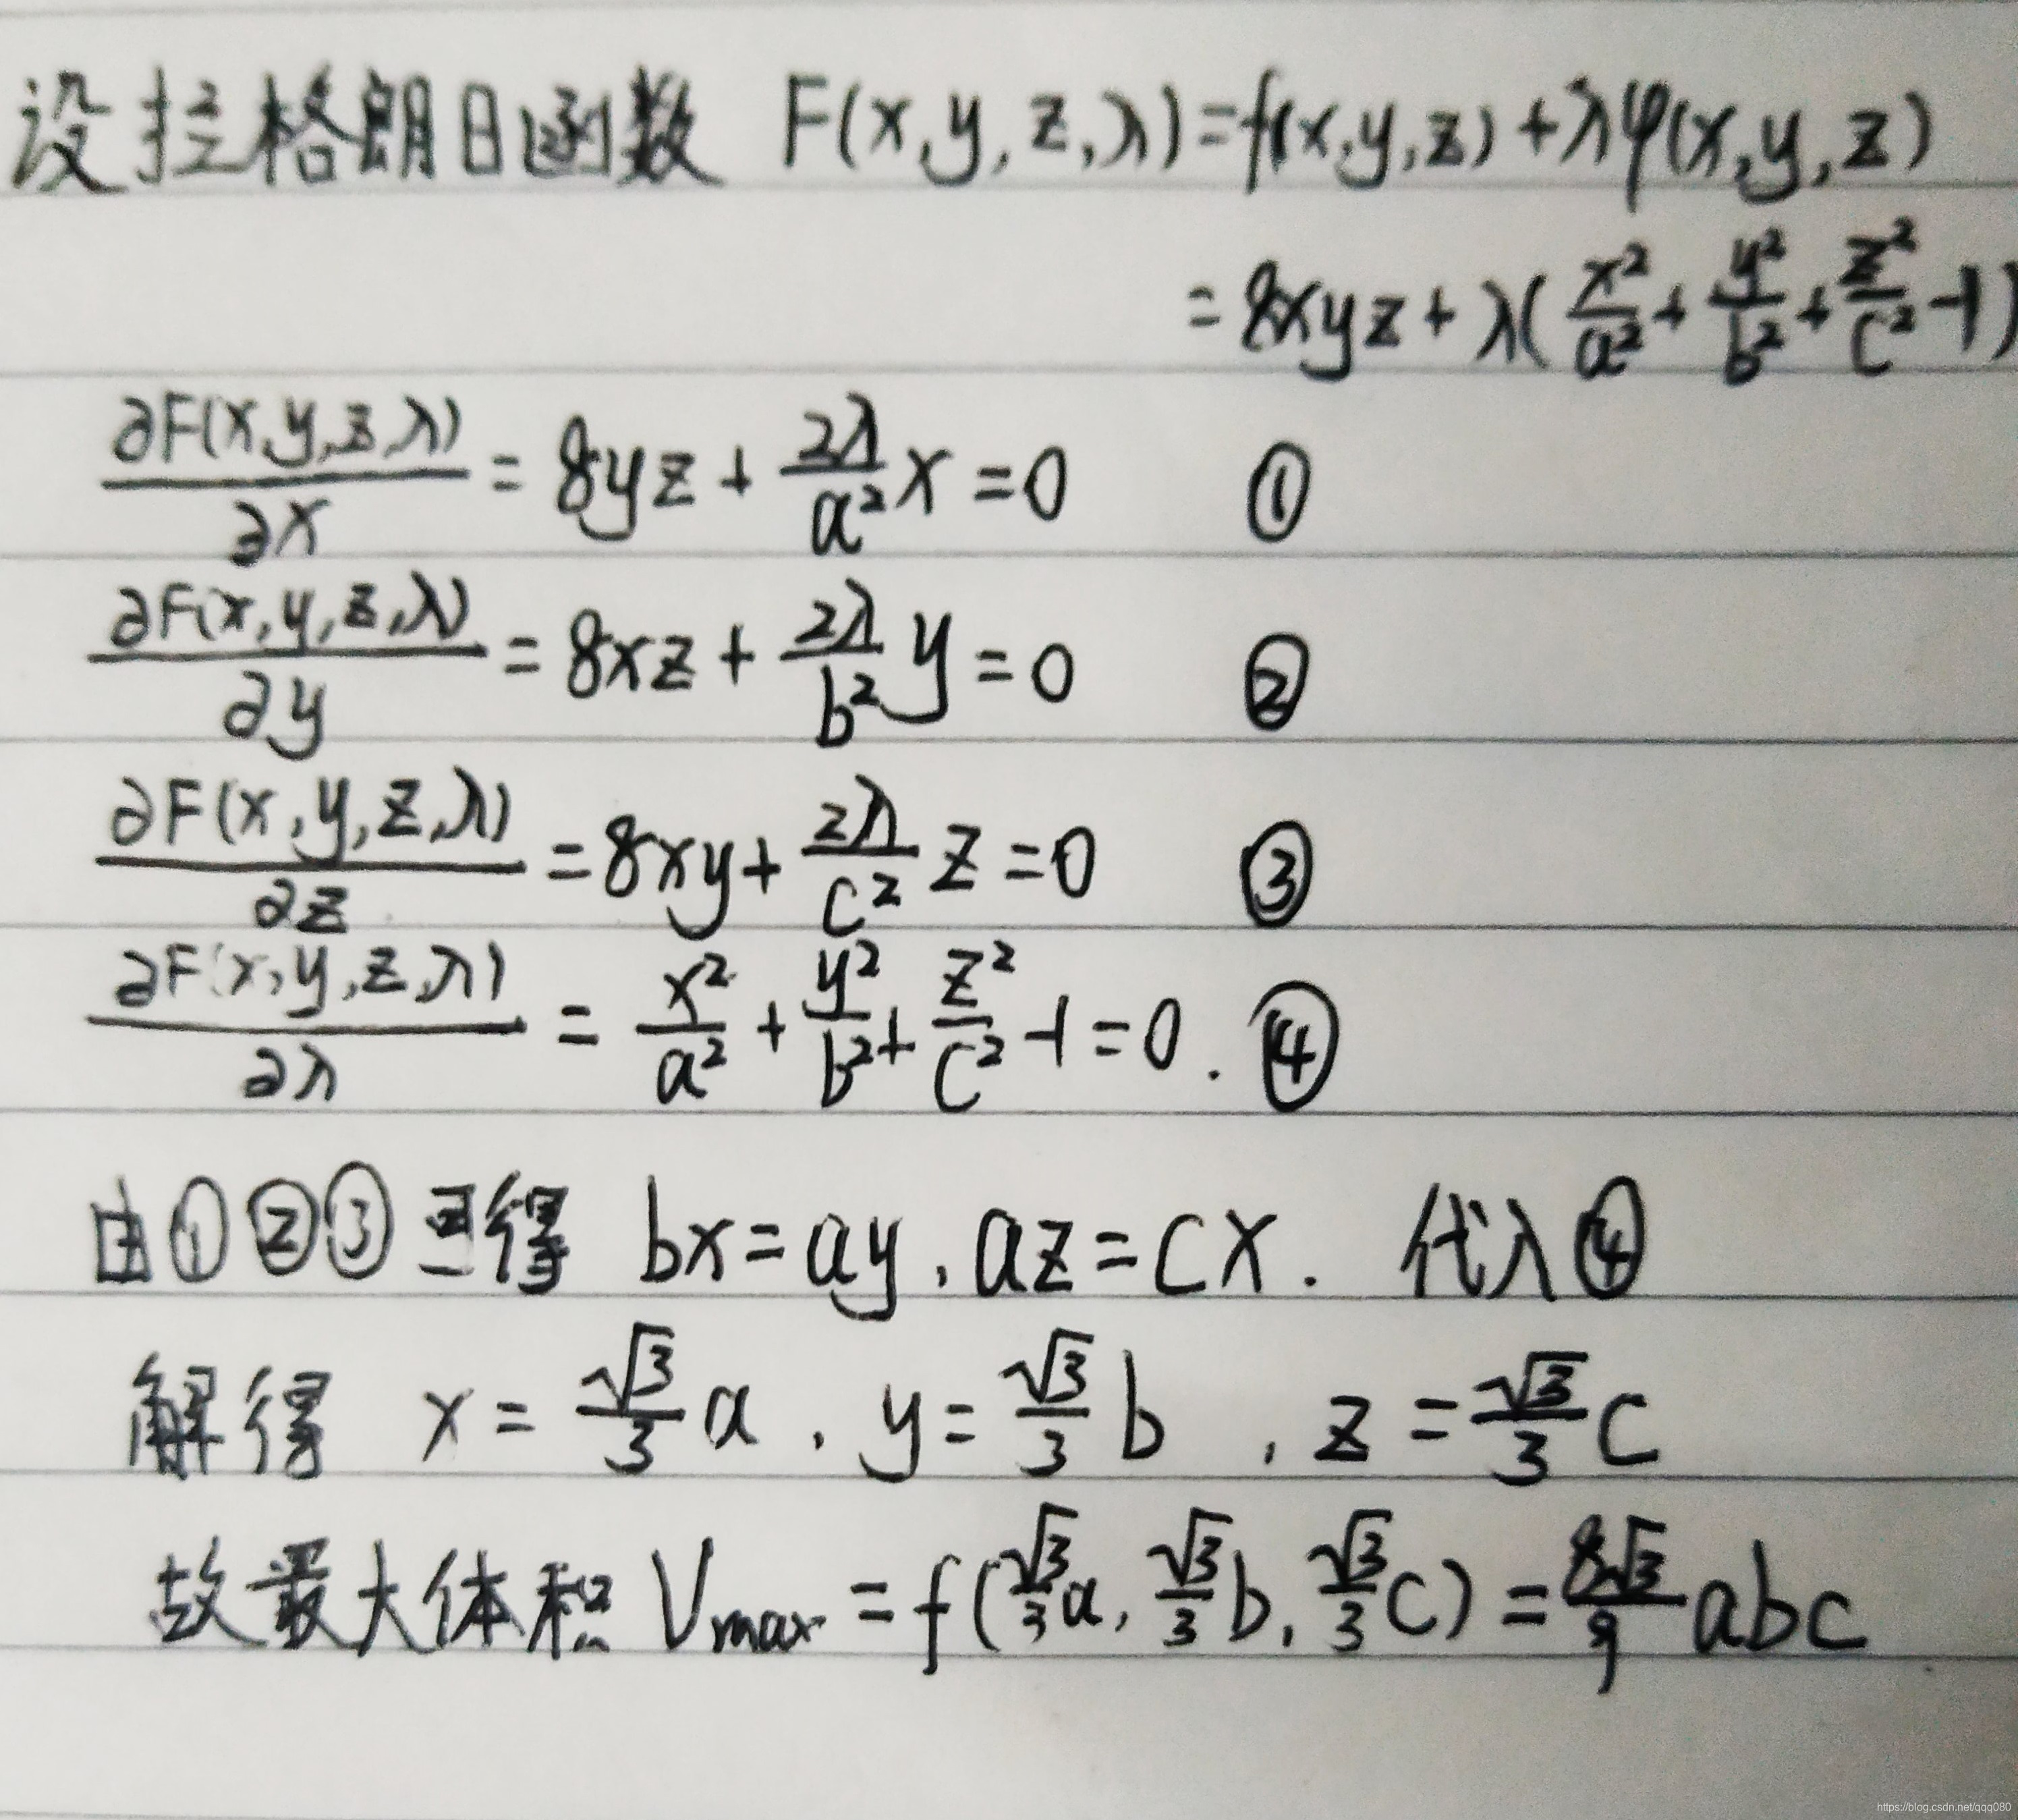 设拉格朗日函数 F(x,y,z,λ)=f(x,y,z)+λφ(x,y,z)
=8xyz+λ(x²/a²+y²/b²+z²/c²-1)
∂F(x,y,z,λ)/∂x=8yz+2λ/a² x=0 ①
∂F(x,y,z,λ)/∂y=8xz+2λ/b² y=0 ②
∂F(x,y,z,λ)/∂z=8xy+2λ/c² z=0 ③
∂F(x,y,z,λ)/∂λ=x²/a²+y²/b²+z²/c²-1=0. ④
由①②③ 得 bx=ay, az=cx. 代入④
解得 x=√3/3 a, y=√3/3 b, z=√3/3 c
故最大体积 Vmax=f(√3/3 a, √3/3 b, √3/3 c)=8√3/9 abc
https://blog.csdn.net/qqq080